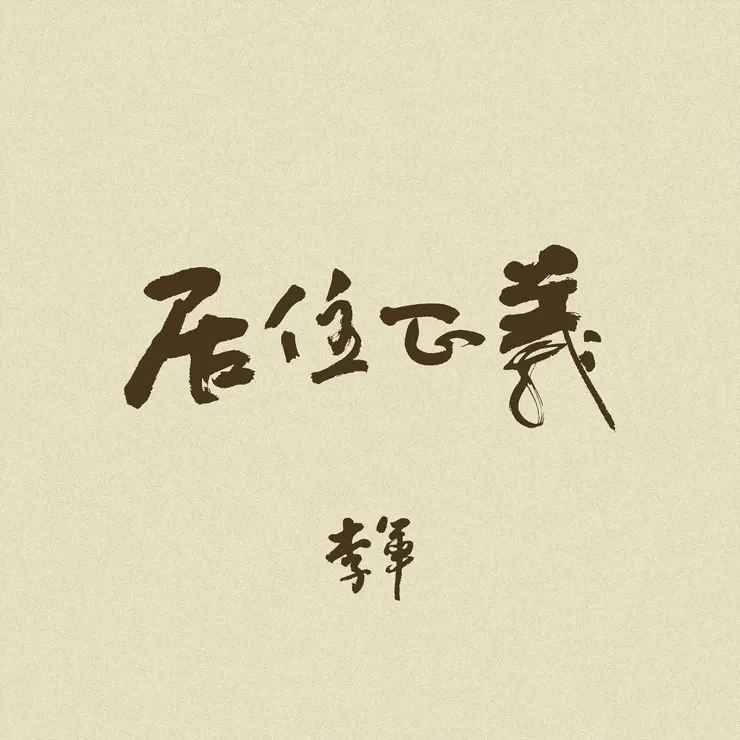 居住正義
李軍